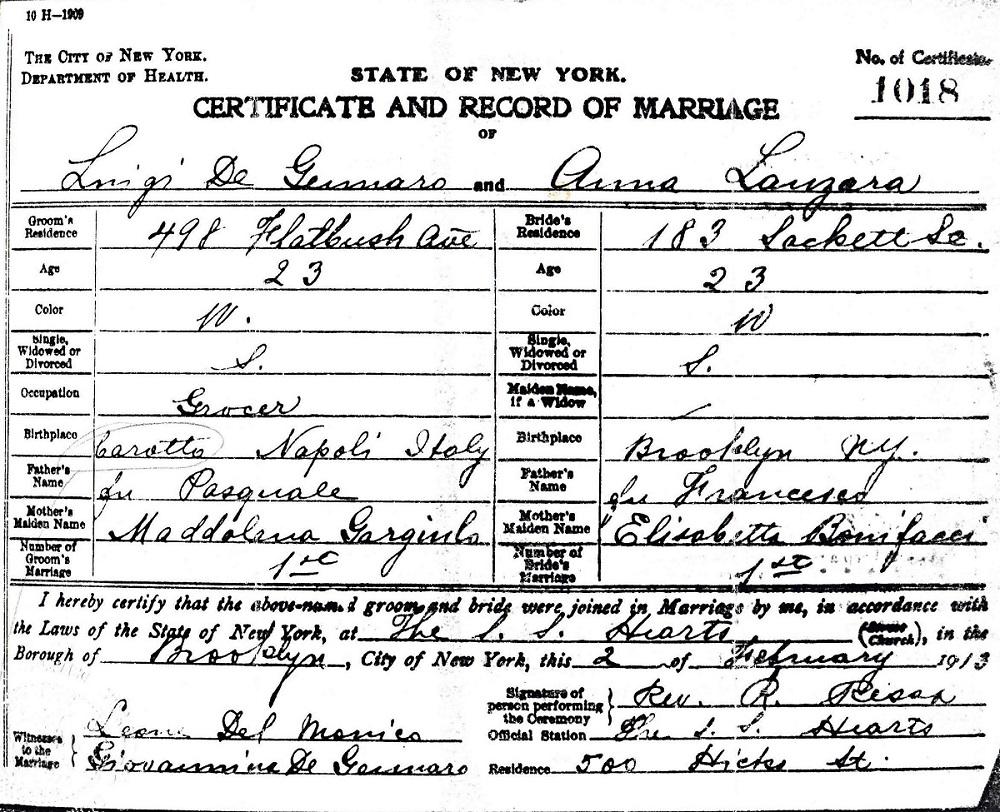 10 H—1909
THE CITY OF NEW YORK.
DEPARTMENT OF HEALTH.
STATE OF NEW YORK.
No. of Certificate
1018
CERTIFICATE AND RECORD OF MARRIAGE
OF
Luigi De Gennaro and Anna Lanzara
Groom's Residence 498 Flatbush Ave Bride's Residence 183 Sackett St.
Age 23 Age 23
Color W. Color W
Single, Widowed or Divorced S. Single, Widowed or Divorced S.
Occupation Grocer Maiden Name, if a Widow /
Birthplace Carotto Napoli Italy Birthplace Brooklyn NY.
Father's Name fu Pasquale Father's Name fu Francesco
Mother's Maiden Name Maddalena Gargiulo Mother's Maiden Name Elisabetta Bonifacci
Number of Groom's Marriage 1st Number of Bride's Marriage 1st
I hereby certify that the above-named groom and bride were joined in Marriage by me, in accordance with
the Laws of the State of New York, at The S. S. Hearts (House Church), in the
Borough of Brooklyn, City of New York, this 2 of February 1913
Witnesses to the Marriage } Leone Del Monico
Giovannina De Gennaro
Signature of person performing the Ceremony } Rev. R.
Official Station The S. S. Hearts
Residence 500 Hicks St.